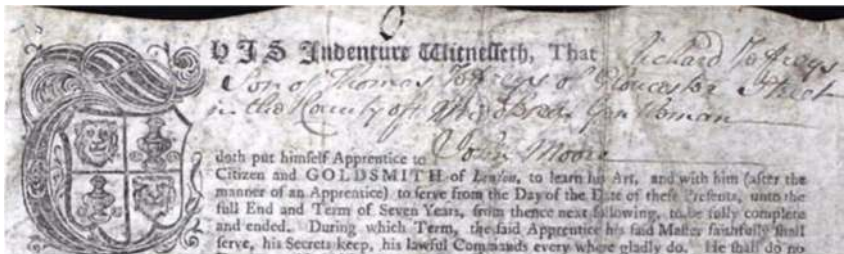 THIS Indenture Witnesseth, That Richard Jefreys
Son of Thomas Jefreys of Gloucester Street
in the County of Gentleman
doth put himself Apprentice to John Moore
Citizen and GOLDSMITH of London, to learn his Art, and with him (after the
manner of an Apprentice) to serve from the Day of the Date of these Presents, unto the
full End and Term of Seven Years, from thence next following, to be fully complete
and ended. During which Term, the said Apprentice his said Master faithfully shall
serve, his Secrets keep, his lawful Commands every where gladly do. He shall do no